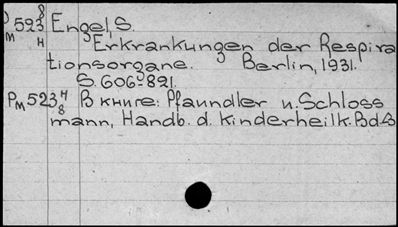 8
M 523 Engel, S.
H
Erkrankungen der Respira
tionsorgane. Berlin, 1931.
S. 606-821.
PM 523 H 8 В книге: Pfaundler u. Schloss
mann, Handb. d. Kinderheilk. Bd.